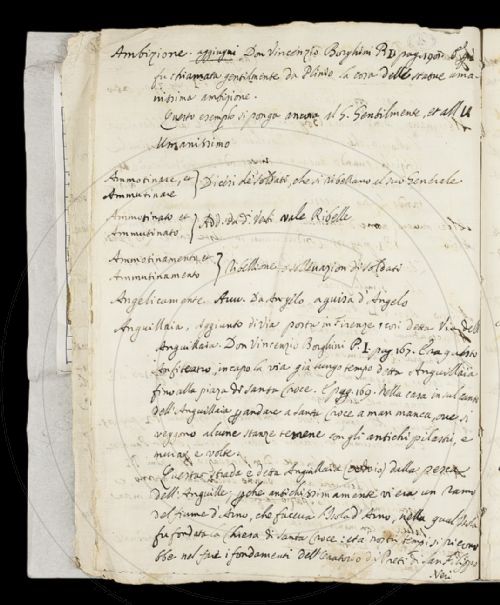 Ambizione. aggiugni Don Vincenzio Borghini P. I. pag. 190.
fu chiamata gentilmente da Plinio la cosa delle statue uma
nissima ambizione.
Questo esempio si ponga ancora al G. Gentilmente, et all' U
Umanissimo
Ammotinare, et
Ammutinare } Dicesi de' Soldati, che si ribellano al suo Generale
Ammotinato et
Ammutinato. } Add. da' di Voti vale Ribelle
Ammotinamento, et
Ammutinamento } Ribellione, sollevazion di Soldati
Angelicamente. Avv. Da Angelo, a guisa d'Angelo
Anguillaia, aggiunto di via posta in Firenze, così detta Via dell'
Anguillaia. Don Vincenzio Borghini P. I. pag 167. Era questo
Anfiteatro, in capo la via già lungo tempo detta Anguillaia
fino alla piaza di Santa Croce. E pag. 169. Nella casa in sul canto
dell'Anguillaia p andare a Santa Croce a man manca, ove si
veggono alcune stanze terrene con gli antichi pilastri, e
muraz e volte.
Questa strada è detta Anguillaia dalla pesca
dell'Anguille, pche antichissimamente vi era un ramo
del fiume d'Arno, che faceva Isola d'Arno, nella qual Isola
fu fondata la Chiesa di Santa Croce: et a' nostri tempi si riconob
be nel fare i fondamenti dell'Oratorio de' Preti di San Filippo
Neri